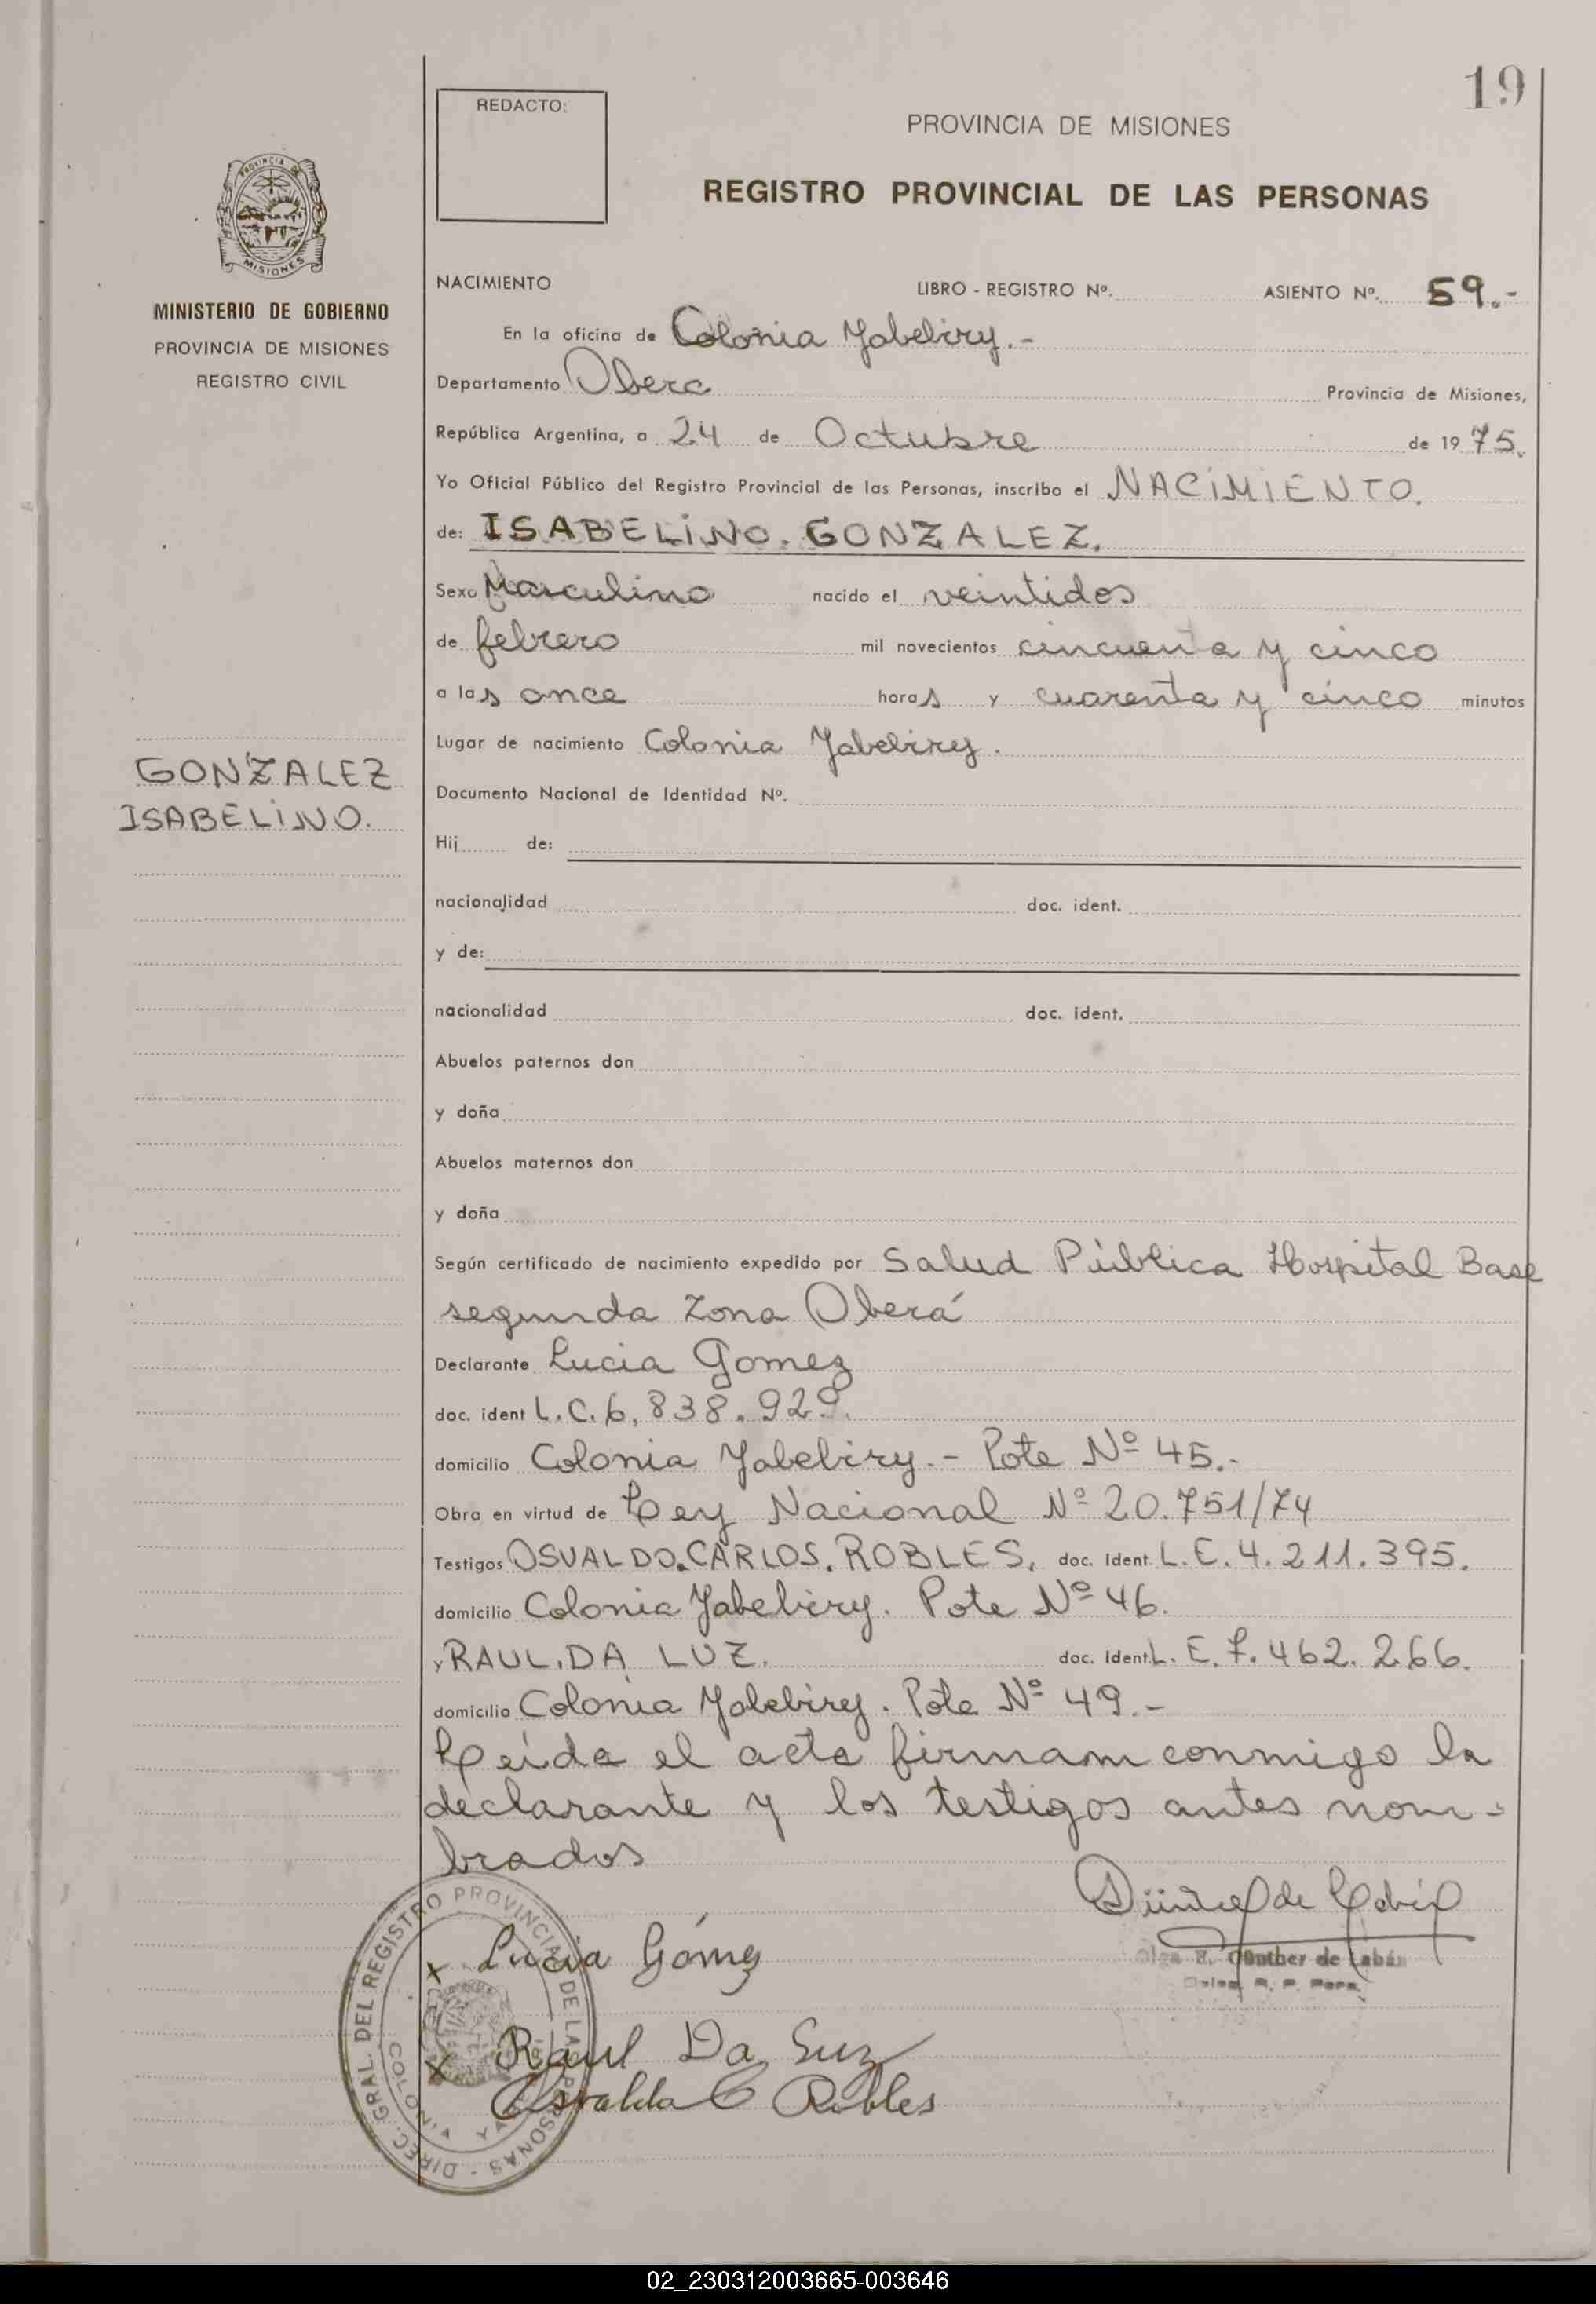 19
REDACTO:
PROVINCIA DE MISIONES
REGISTRO PROVINCIAL DE LAS PERSONAS
PROVINCIA DE
MISIONES
MINISTERIO DE GOBIERNO
PROVINCIA DE MISIONES
REGISTRO CIVIL
NACIMIENTO LIBRO - REGISTRO Nº. ASIENTO Nº. 59.-
En la oficina de Colonia Yabebiry.-
Departamento Obera Provincia de Misiones,
República Argentina, a 24 de Octubre de 1975.
Yo Oficial Público del Registro Provincial de las Personas, inscribo el NACIMIENTO.
de: ISABELINO. GONZALEZ.
Sexo Masculino nacido el veintidos
de febrero mil novecientos cincuenta y cinco
a las once horas y cuarenta y cinco minutos
Lugar de nacimiento Colonia Yabebiry.
GONZALEZ
ISABELINO.
Documento Nacional de Identidad Nº.
Hij de:
nacionalidad doc. ident.
y de:
nacionalidad doc. ident.
Abuelos paternos don
y doña
Abuelos maternos don
y doña
Según certificado de nacimiento expedido por Salud Pública Hospital Base
segunda Zona Oberá
Declarante Lucia Gomez
doc. ident L.C. 6.838.929.
domicilio Colonia Yabebiry.- Lote Nº 45.-
Obra en virtud de Ley Nacional Nº 20.751/74
Testigos OSVALDO. CARLOS. ROBLES. doc. Ident. L.E. 4.211.395.
domicilio Colonia Yabebiry. Lote Nº 46.
y RAUL. DA LUZ. doc. Ident. L.E. 7.462.266.
domicilio Colonia Yabebiry. Lote Nº 49.-
Leída el acta firmam conmigo la
declarante y los testigos antes nom-
brados
DIREC. GRAL. DEL REGISTRO PROVINCIAL DE LAS PERSONAS
COLONIA
x Lucia Gómez
Günther de Labán
x Raul Da Luz
Osvaldo C Robles
02_230312003665-003646